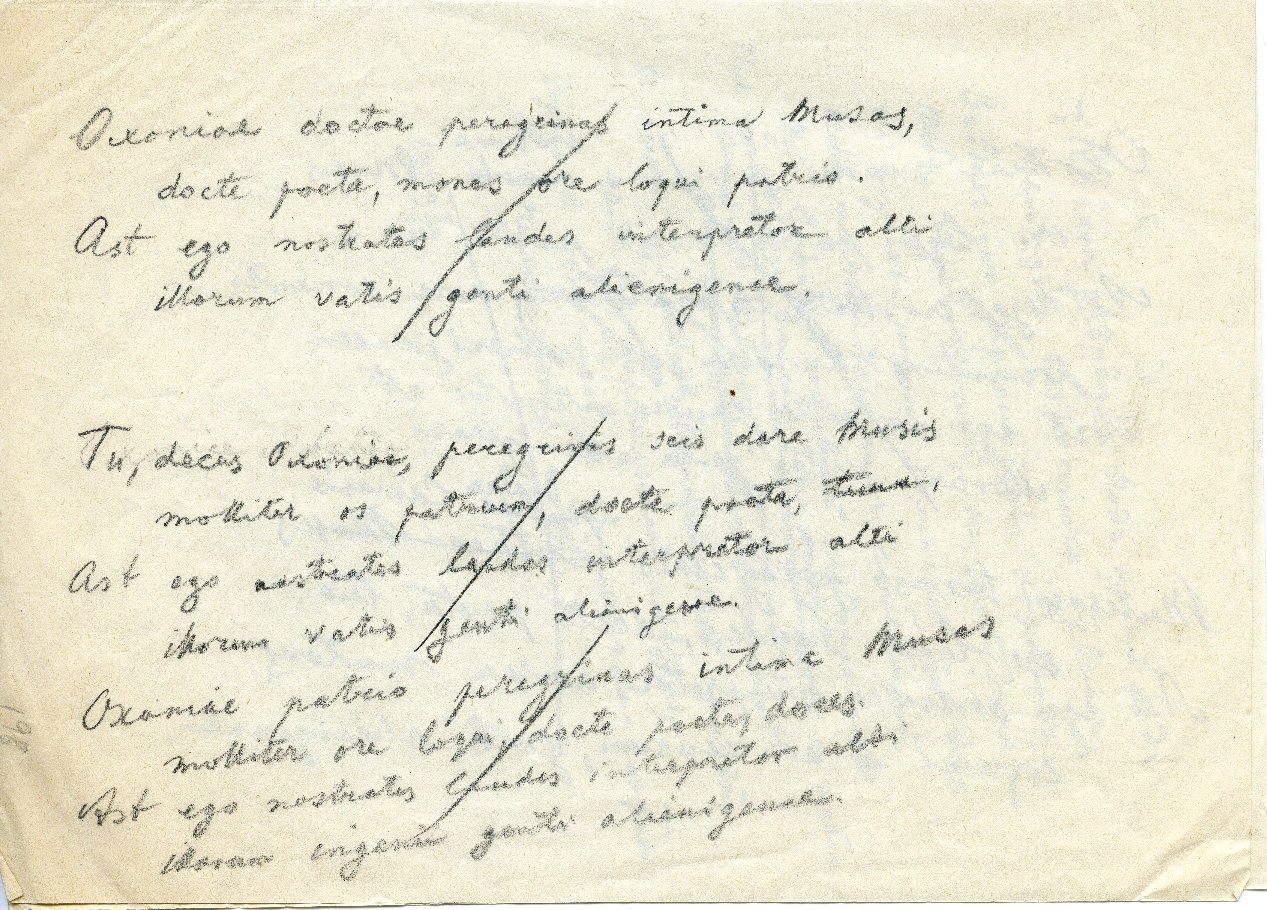 Oxoniae doctae peregrinas intima Musas,
docte poeta, mones ore loqui patrio.
Ast ego nostrates laudes interpretor alti
illorum vatis genti alienigenae.
Tu, decus Oxoniae, peregrinis scis dare Musis
molliter os patrium, docte poeta, tuum.
Ast ego nostrates laudes interpretor alti
illorum vatis genti alienigenae.
Oxoniae patrio peregrinas intima Musas
molliter ore loqui, docte poeta, doces.
Ast ego nostrates laudes interpretor alti
illorum ingenii genti alienigenae.